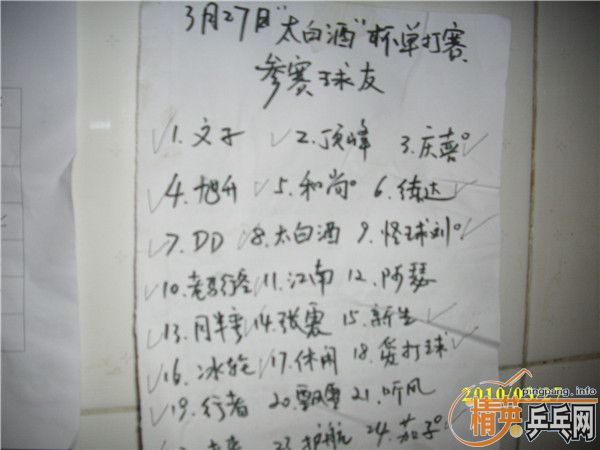 3月27日"太白酒"杯单打赛
参赛球友
1. 文子 2. 顶峰 3. 庆喜
4. 旭升 5. 和尚 6. 德达
7. DD 8. 太白酒 9. 怪球刘
10. 老 11. 江南 12. 阿瑟
13. 14. 张震 15. 新生
16. 冰轮 17. 休闲 18. 货打球
19. 行者 20. 飘雪 21. 听风
23. 护航 24. 茄子
2010/0
pingpang.info
精英乒乓网